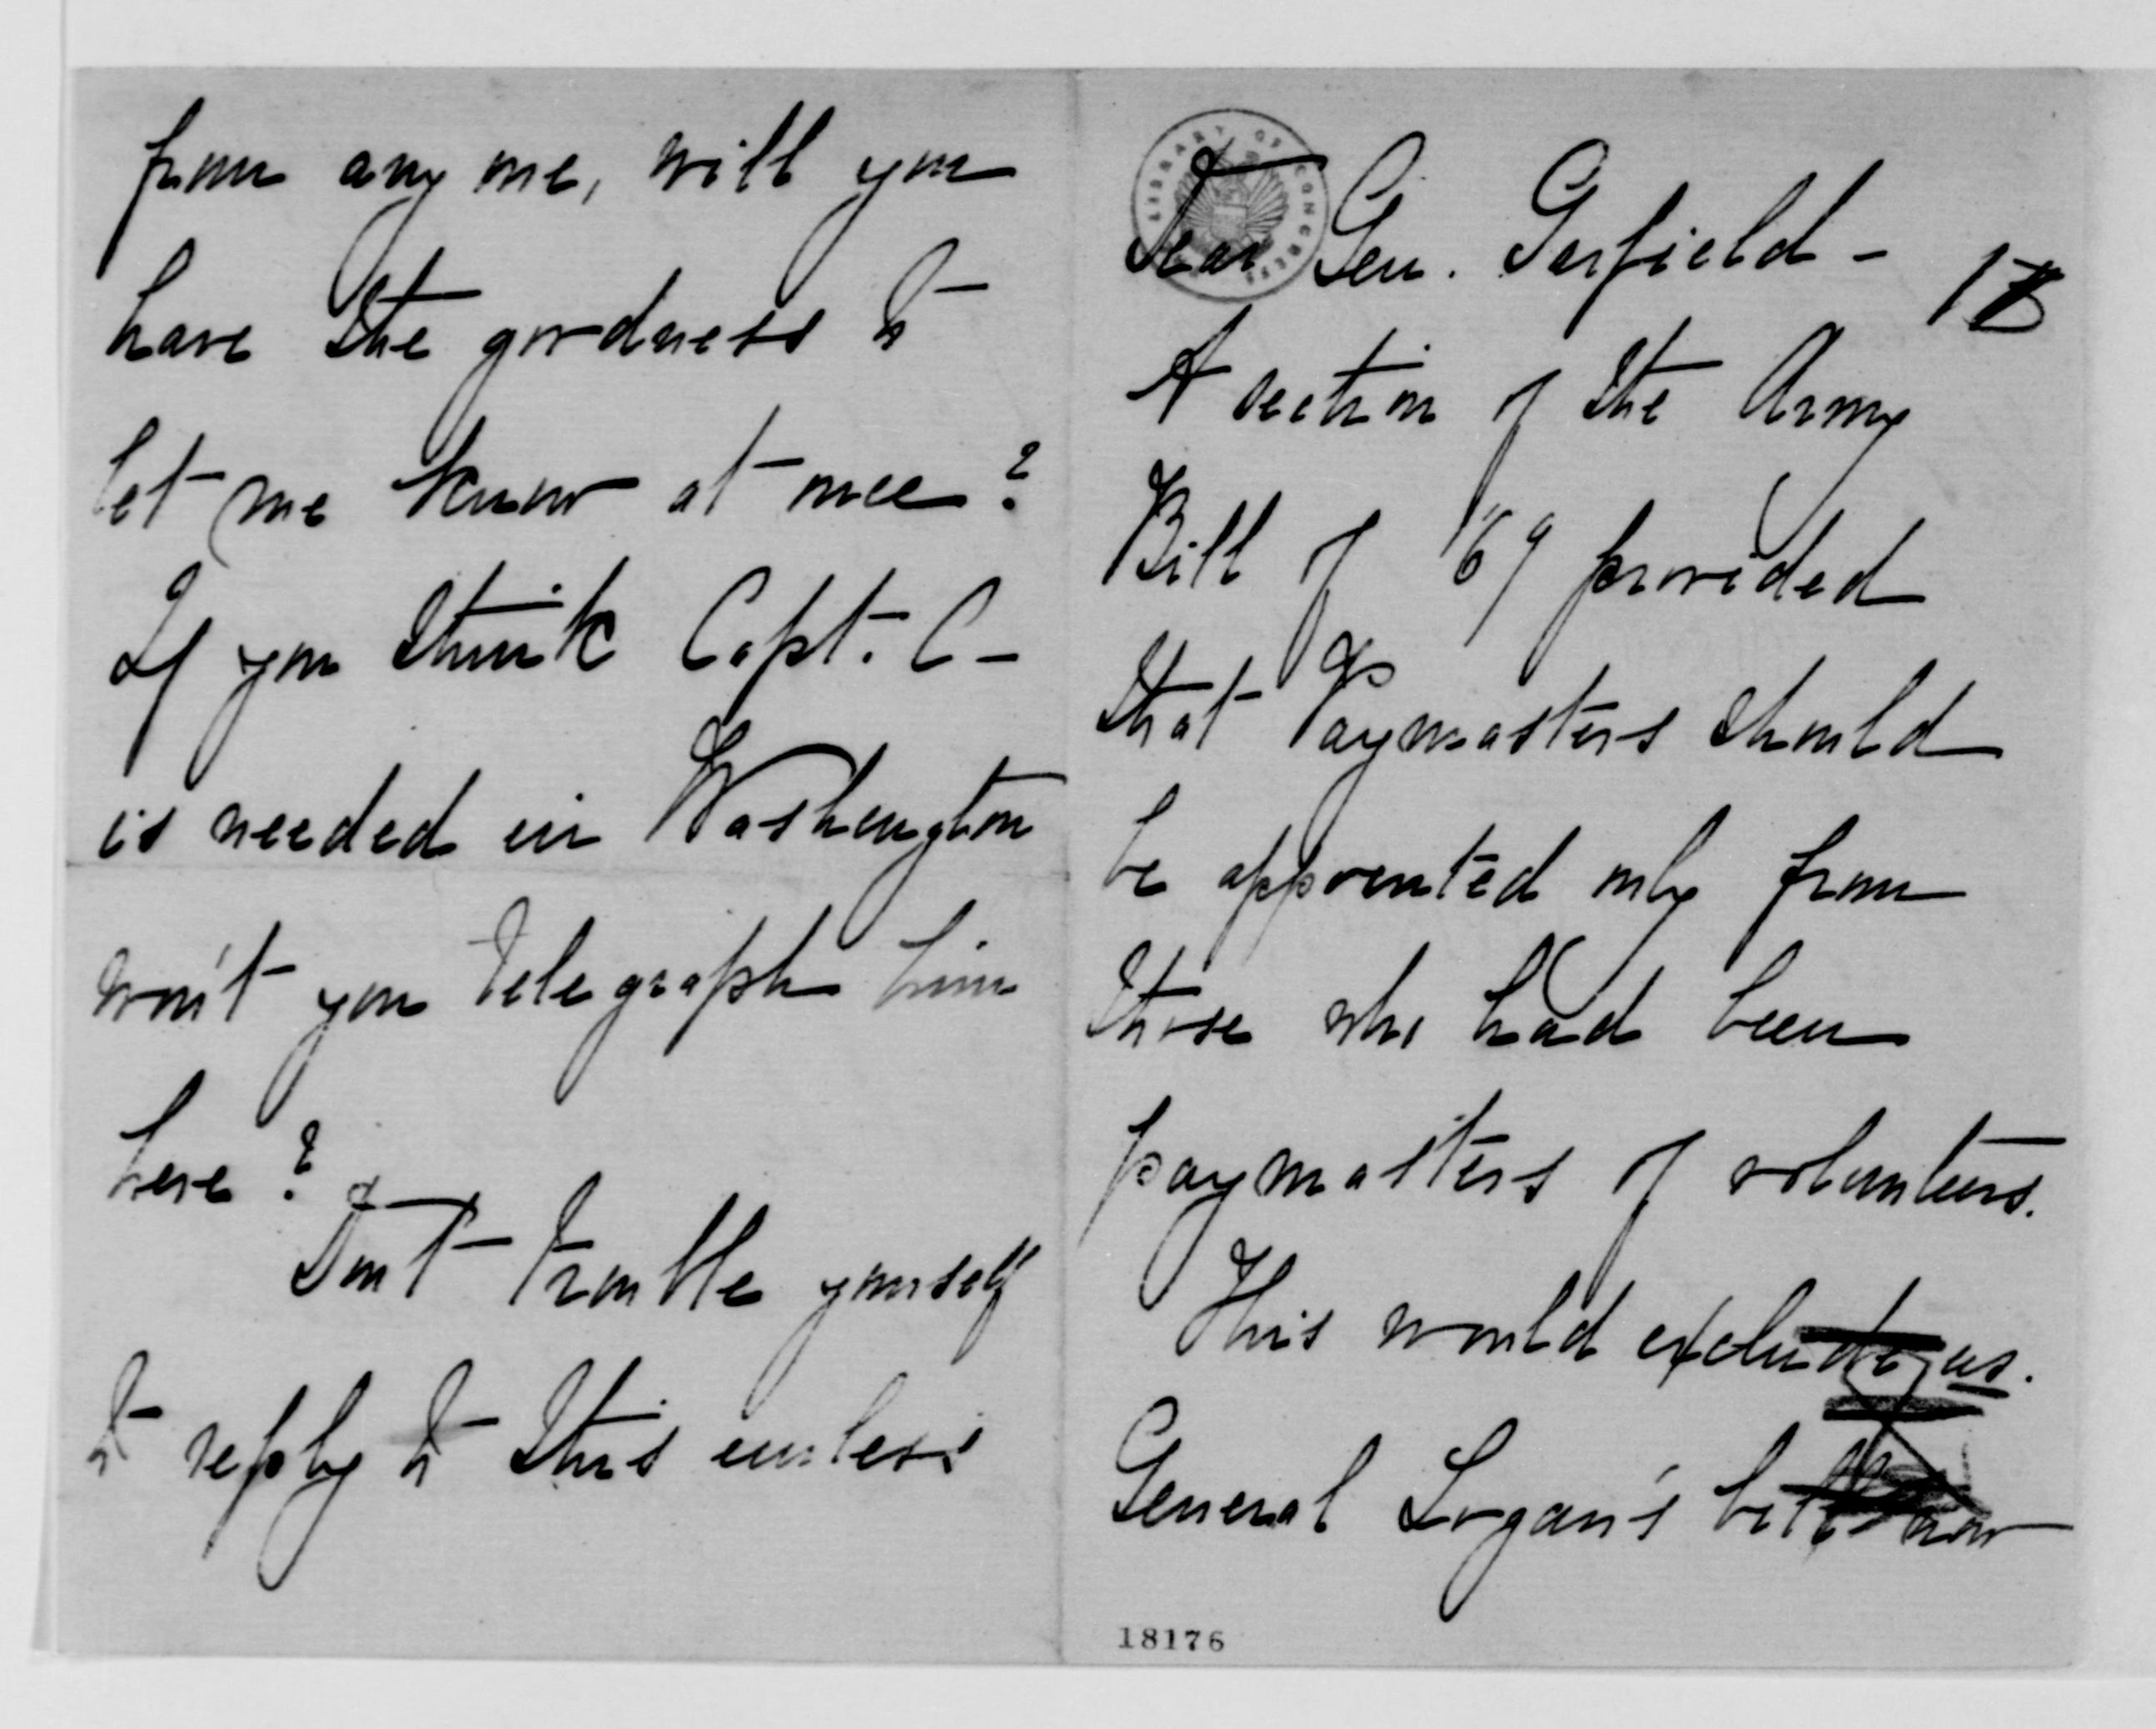 from any one, will you
have the goodness to
let me know at once?
If you think Capt. C—
is needed in Washington
won't you telegraph him
here?
Don't trouble yourself
to reply to this unless
LIBRARY OF CONGRESS
Dear Gen. Garfield —
A section of the Army
Bill of '69 provided
that Paymasters should
be appointed only from
those who had been
paymasters of volunteers.
This would exclude us.
General Logan's bill now
18176